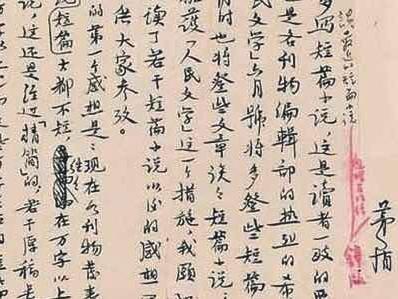 茅盾
谈最近的短篇小说
多写短篇小说,这是读者一致的
也是各刊物编辑部的热烈的希
民文学》六月号将多登些短篇
时也将登些文章谈谈短篇小说,
拥护《人民文学》这一个措施,我愿
读了若干短篇小说以后的感想
供大家参考。
的第一个感想是:现在各刊物发表
短篇大都不短,往往在万字以上
说,这还是经过“精简”的,若干原稿